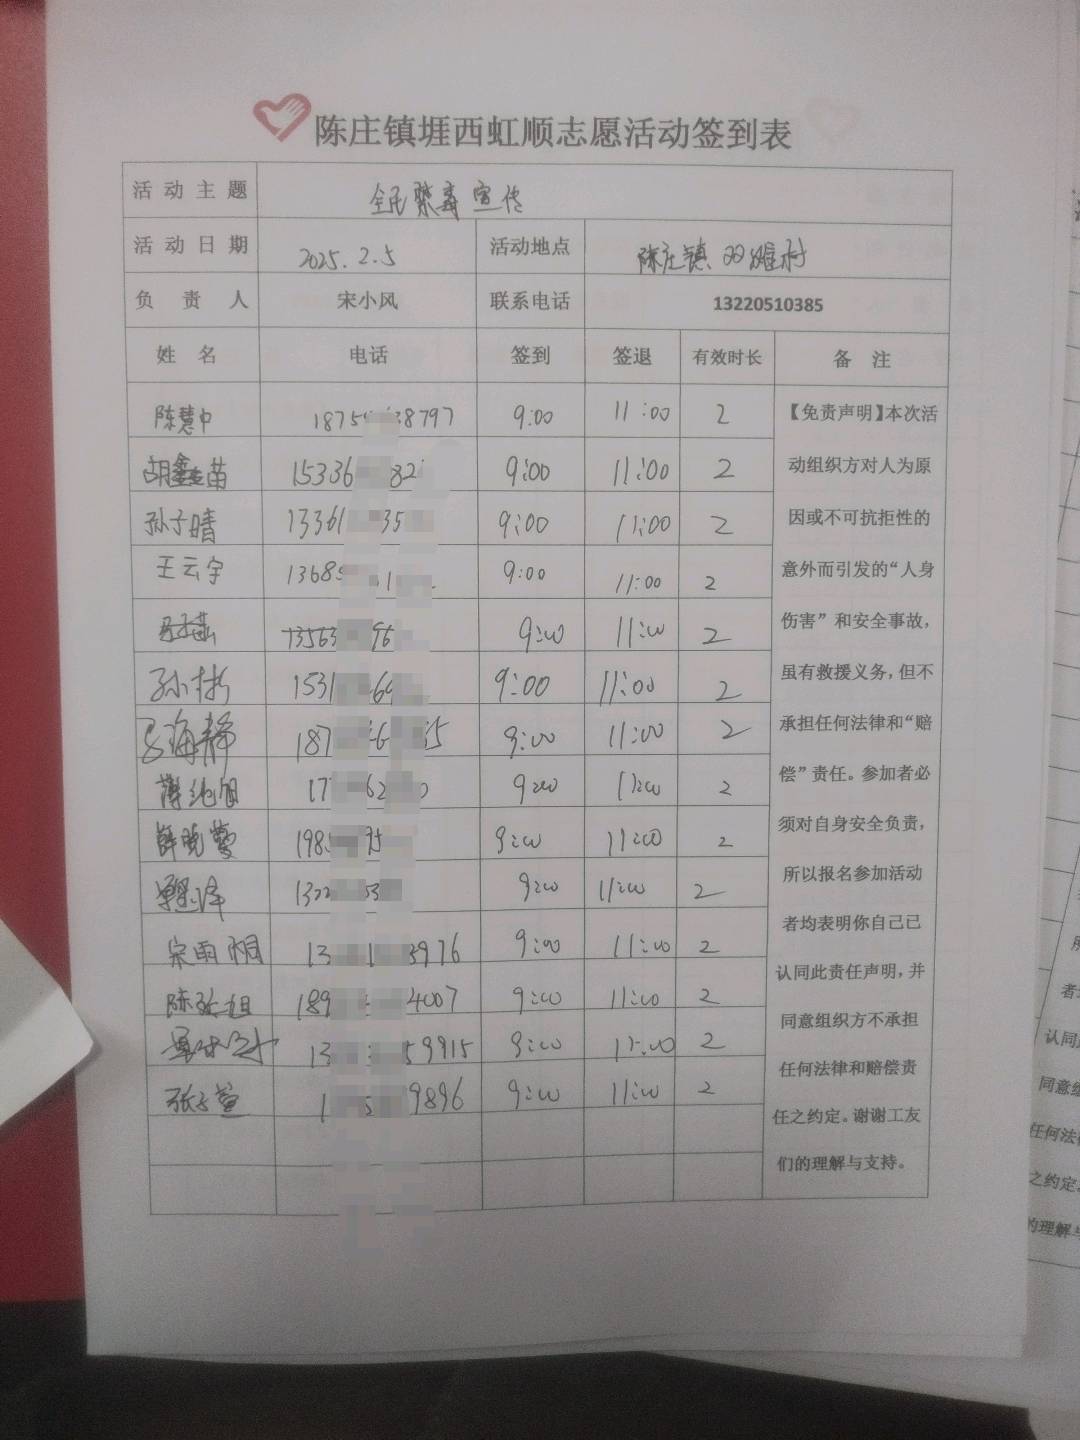 陈庄镇堐西虹顺志愿活动签到表
活动主题 全民禁毒宣传
活动日期 2025.2.5 活动地点 陈庄镇 双雄村
负责人 宋小风 联系电话 13220510385
姓名 电话 签到 签退 有效时长 备注
陈慧中 1875 38797 9:00 11:00 2 【免责声明】本次活
胡鑫苗 15336 82 9:00 11:00 2 动组织方对人为原
孙子晴 13361 35 9:00 11:00 2 因或不可抗拒性的
王云宇 13685 1 9:00 11:00 2 意外而引发的“人身
13563 96 9:00 11:00 2 伤害”和安全事故，
孙彬 1531 69 9:00 11:00 2 虽有救援义务，但不
海静 187 6 55 9:00 11:00 2 承担任何法律和“赔
薄纯旭 17 62 0 9:00 11:00 2 偿”责任。参加者必
薛晓莹 1985 95 9:00 11:00 2 须对自身安全负责，
泽 132 53 9:00 11:00 2 所以报名参加活动
宋雨桐 13 1 3976 9:00 11:00 2 者均表明你自己已
陈 189 4007 9:00 11:00 2 认同此责任声明，并
13 59915 9:00 11:00 2 同意组织方不承担
张子萱 1 5 9896 9:00 11:00 2 任何法律和赔偿责
任之约定。谢谢工友
们的理解与支持。
者
认同此
同意组
任何法律
之约定。
的理解与